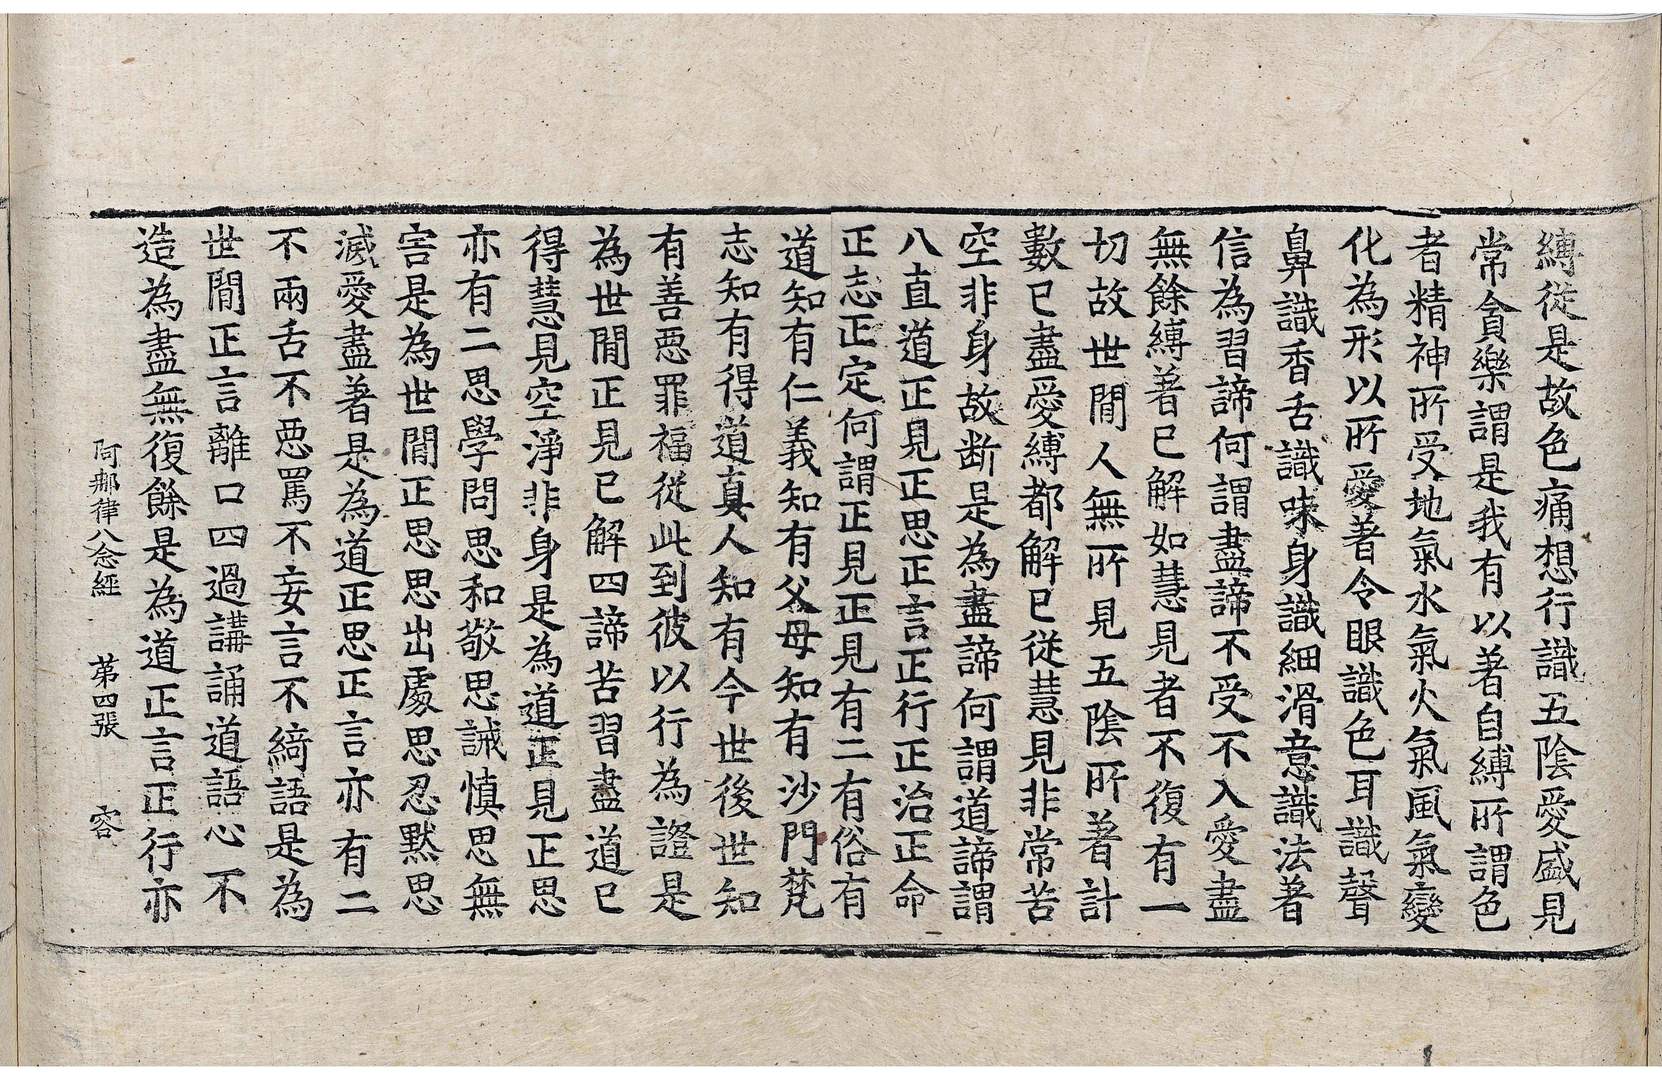 縛從是故色痛想行識五陰愛盛見
常貪樂謂是我有以著自縛所謂色
者精神所受地氣水氣火氣風氣變
化為形以所愛著令眼識色耳識聲
鼻識香舌識味身識細滑意識法著
信為習諦何謂盡諦不受不入愛盡
無餘縛著已解如慧見者不復有一
切故世間人無所見五陰所著計
數已盡愛縛都解已從慧見非常苦
空非身故断是為盡諦何謂道諦謂
八直道正見正思正言正行正治正命
正志正定何謂正見正見有二有俗有
道知有仁義知有父母知有沙門梵
志知有得道真人知有今世後世知
有善惡罪福從此到彼以行為證是
為世間正見已解四諦苦習盡道已
得慧見空淨非身是為道正見正思
亦有二思學問思和敬思誡慎思無
害是為世間正思思出處思忍默思
滅愛盡著是為道正思正言亦有二
不兩舌不惡罵不妄言不綺語是為
世間正言離口四過講誦道語心不
造為盡無復餘是為道正言正行亦
阿那律八念經 第四張 容